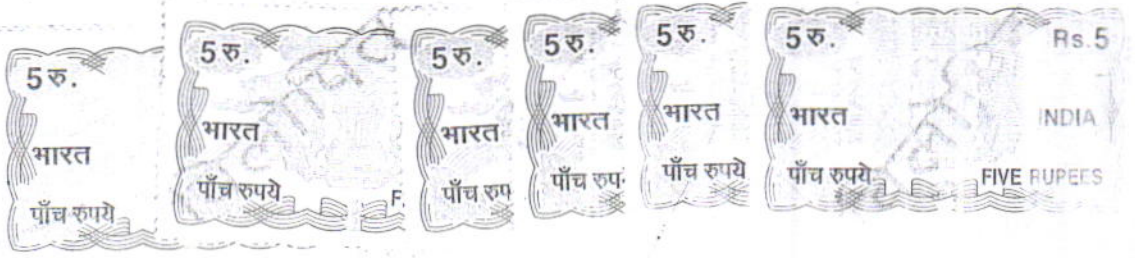 5 रु.
भारत
पाँच रुपये
5 रु.
भारत
पाँच रुपये F
5 रु.
भारत
पाँच रुप
5 रु.
भारत
पाँच रुप
5 रु.
भारत
पाँच रुपये
5 रु. Rs.5
भारत INDIA
पाँच रुपये FIVE RUPEES